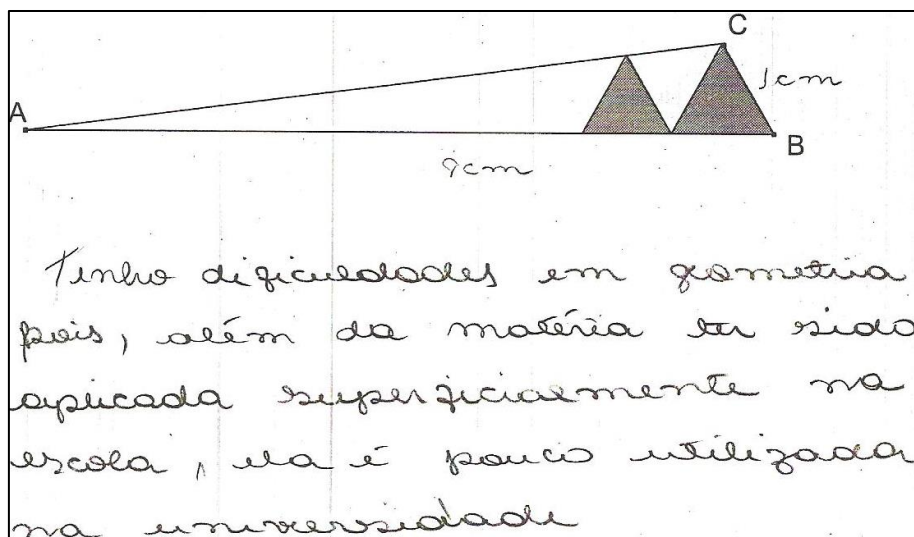 C
1cm
A
B
9cm
Tenho dificuldades em geometria
pois, além da matéria ter sido
aplicada superficialmente na
escola, ela é pouco utilizada
na universidade